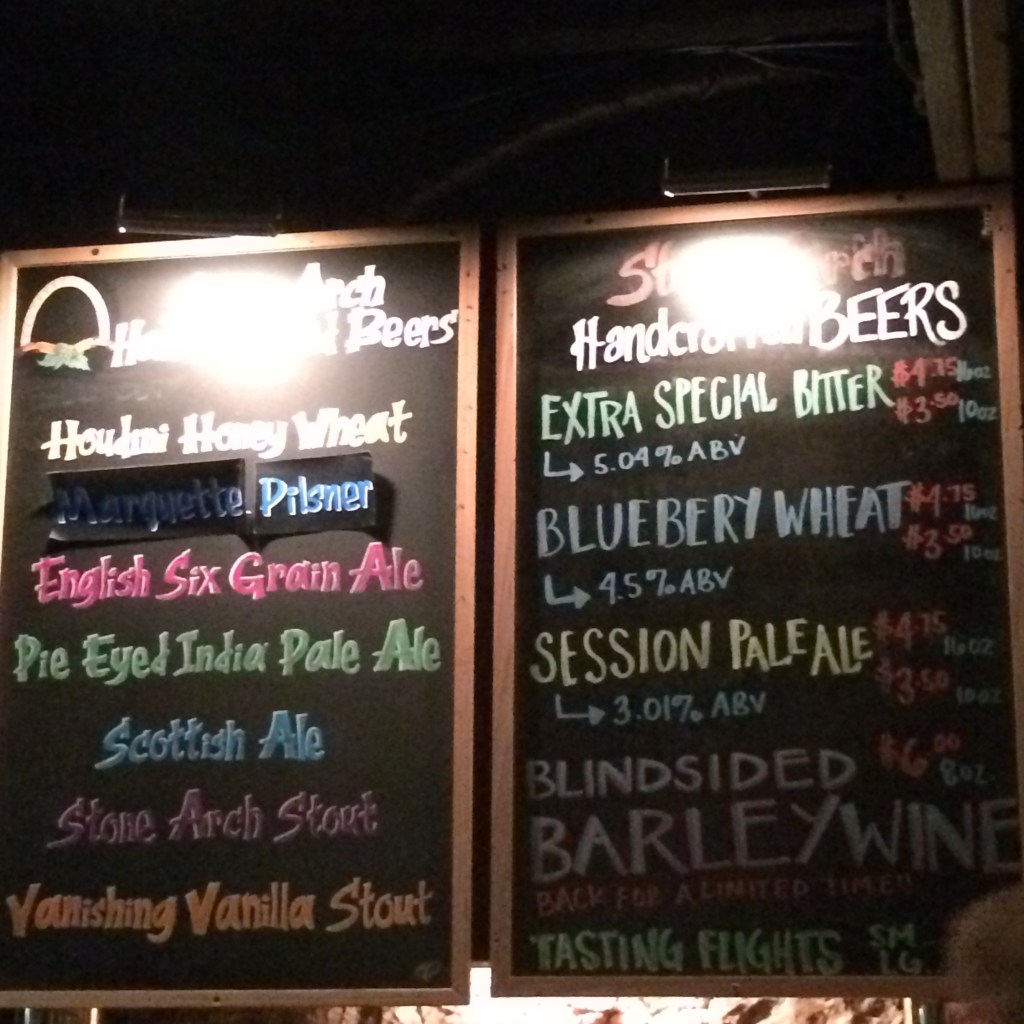 Arch
Beers
Houdini Honey Wheat
Marquette Pilsner
English Six Grain Ale
Pie Eyed India Pale Ale
Scottish Ale
Stone Arch Stout
Vanishing Vanilla Stout
Handcrafted BEERS
EXTRA SPECIAL BITTER $4.75 16oz
$3.50 10oz
↳ 5.04% ABV
BLUEBERY WHEAT $4.75 16oz
$3.50 10oz
↳ 4.5% ABV
SESSION PALE ALE $4.75 16oz
$3.50 10oz
↳ 3.01% ABV
BLINDSIDED $6.00 8oz.
BARLEYWINE
BACK FOR A LIMITED TIME!!
TASTING FLIGHTS SM
LG